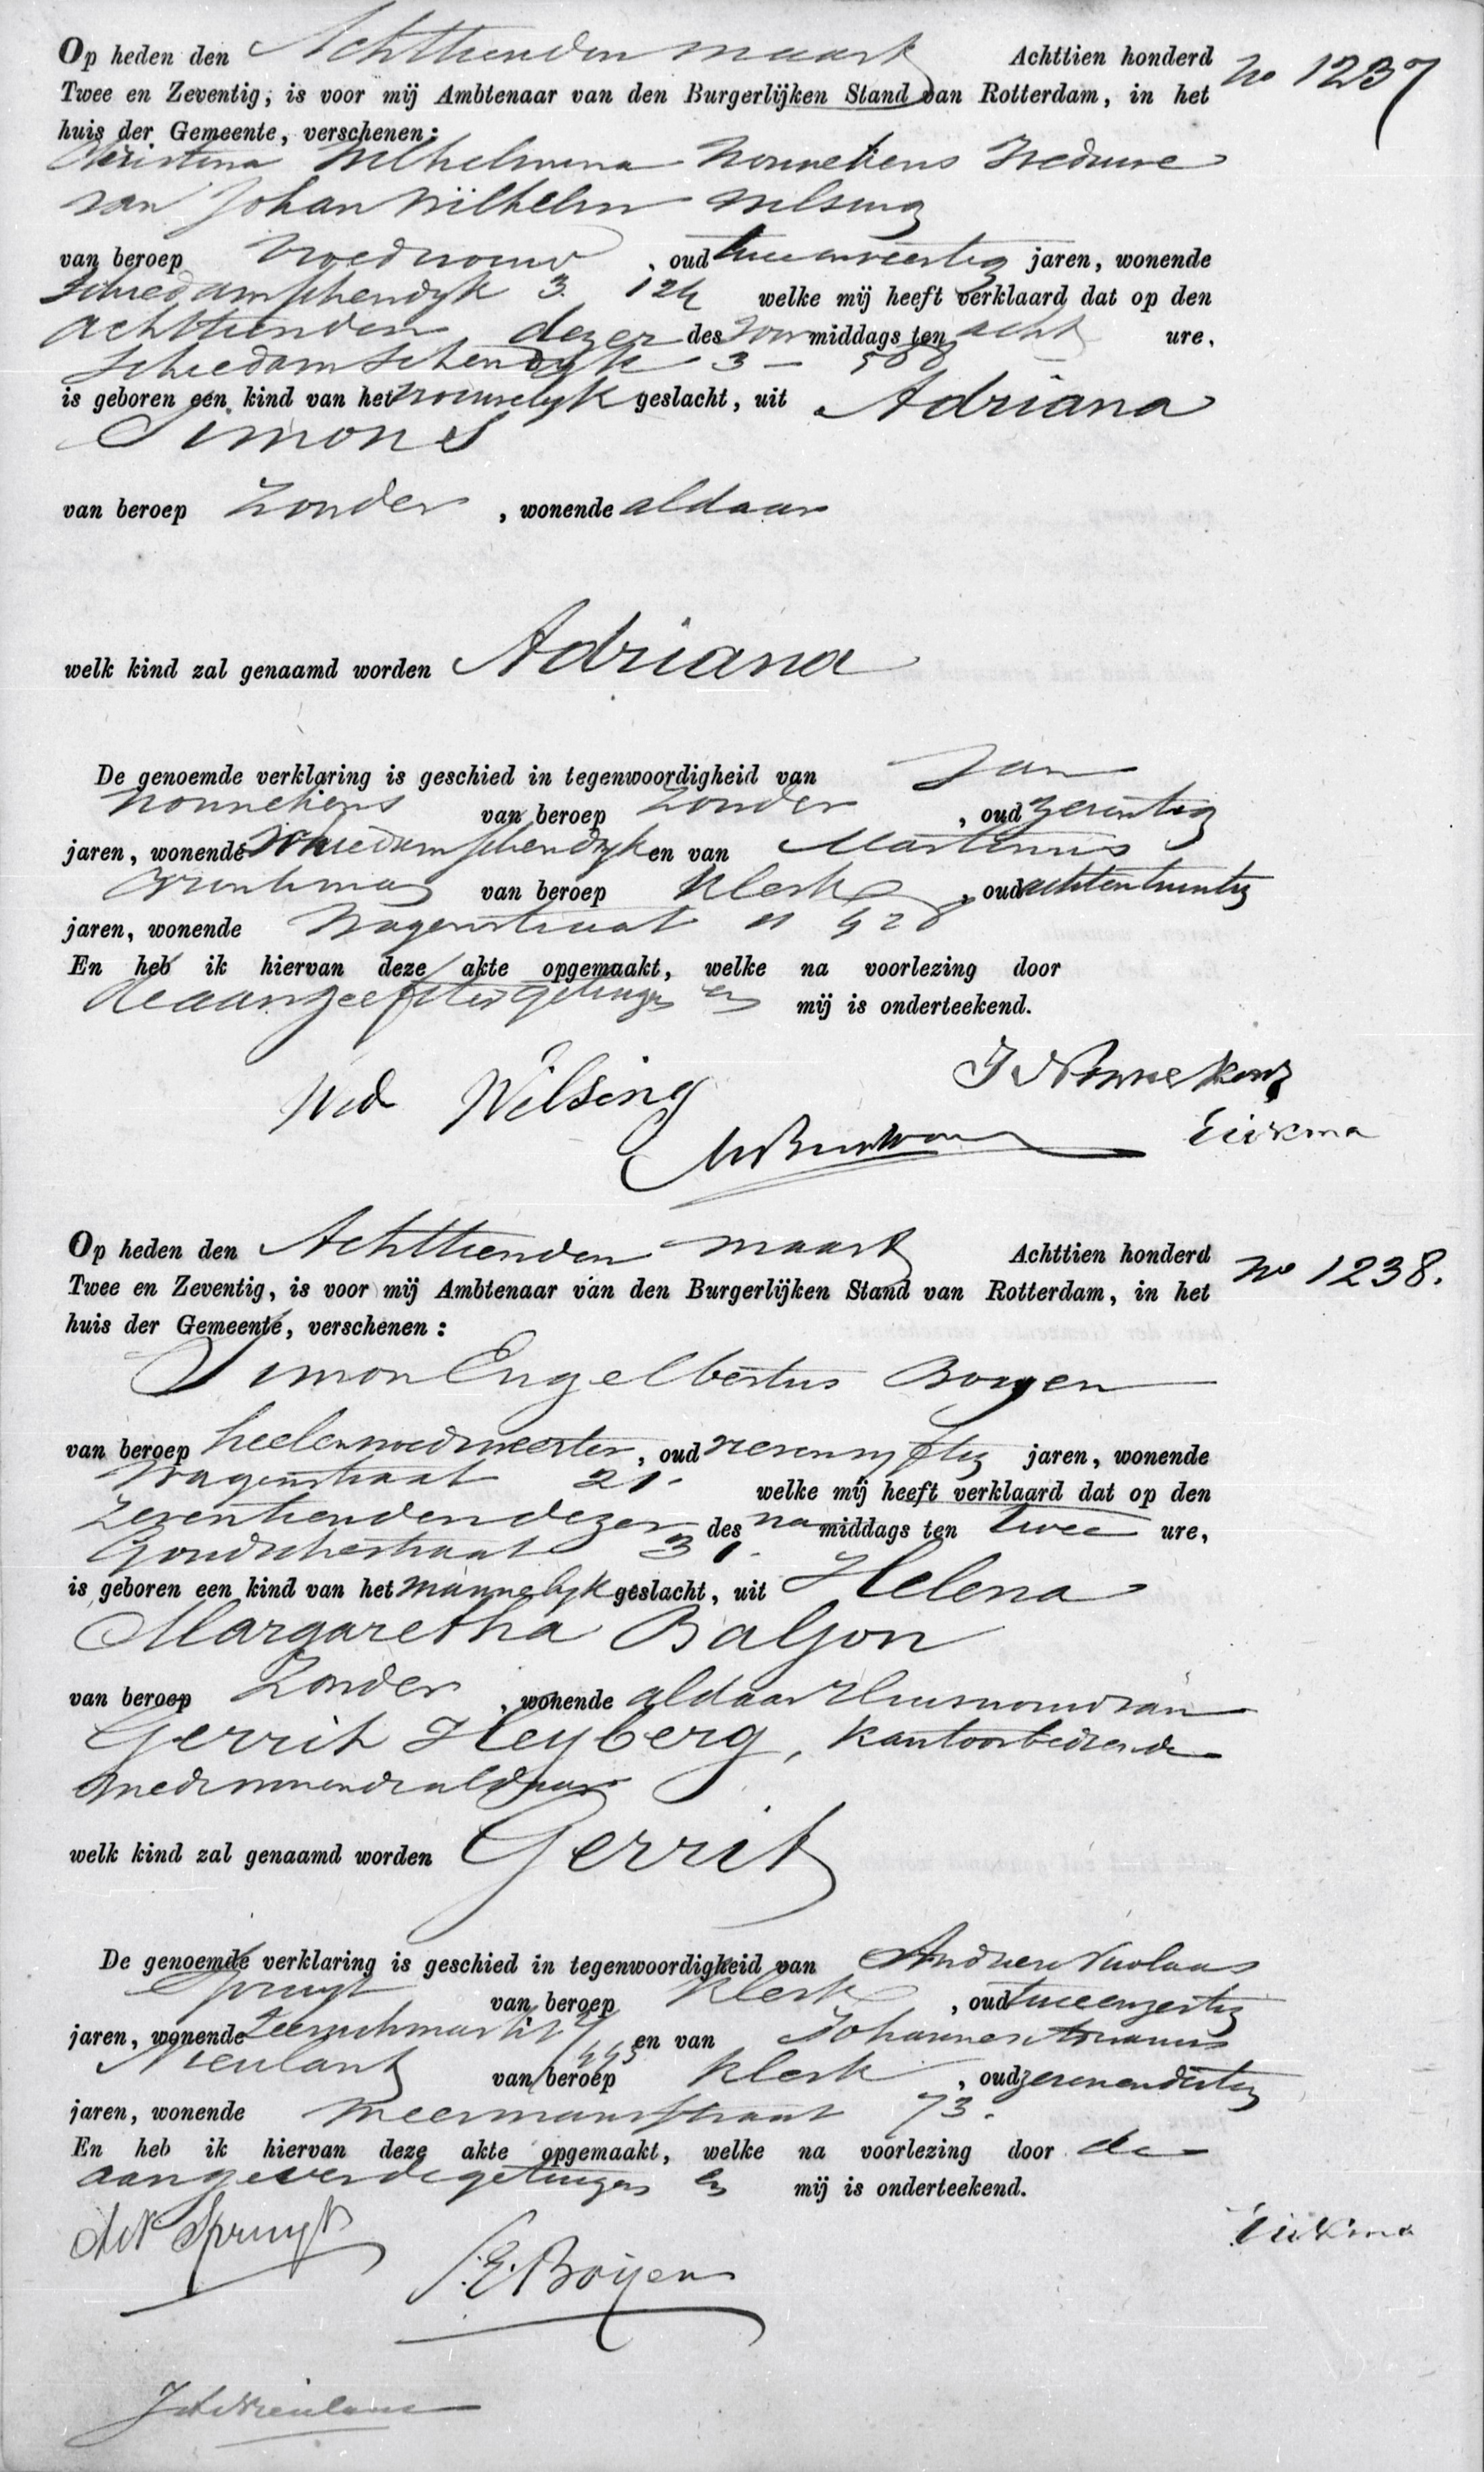 Op heden den Achttienden maart Achttien honderd No 1237
Twee en Zeventig, is voor mij Ambtenaar van den Burgerlijken Stand van Rotterdam, in het
huis der Gemeente, verschenen:
Christina Wilhelmina Nonnekens Weduwe
van Johan Wilhelm Wilsing
van beroep vroedvrouw, oud tweeenveertig jaren, wonende
Schiedamschendyk 3. 124 welke mij heeft verklaard dat op den
achttienden dezer des voormiddags ten acht ure,
Schiedamschendyk 3 – 588
is geboren een kind van het vrouwelyk geslacht, uit Adriana
Simons
van beroep Zonder, wonende aldaar
welk kind zal genaamd worden Adriana
De genoemde verklaring is geschied in tegenwoordigheid van Jan
Nonnekens van beroep Zonder, oud zeventig
jaren, wonende Schiedamschendyk en van Martinus
van beroep Klerk, oud achtentwintig
jaren, wonende Wagenstraat 11 428
En heb ik hiervan deze akte opgemaakt, welke na voorlezing door
de aangeefster getuigen en mij is onderteekend.
Wed Wilsing J Nonnekens
Eickma
Op heden den Achttienden maart Achttien honderd No 1238.
Twee en Zeventig, is voor mij Ambtenaar van den Burgerlijken Stand van Rotterdam, in het
huis der Gemeente, verschenen:
Simon Engelbertus Boyen
van beroep heelenvroedmeester, oud zevenvyftig jaren, wonende
Wagenstraat 21. welke mij heeft verklaard dat op den
Zeventienden dezer des namiddags ten twee ure,
Goudschestraat 31.
is geboren een kind van het mannelyk geslacht, uit Helena
Margaretha Baljon
van beroep Zonder, wonende aldaar Huisvrouw van
Gerrit Heyberg, Kantoorbediende
mede wonende aldaar
welk kind zal genaamd worden Gerrit
De genoemde verklaring is geschied in tegenwoordigheid van Andries Nicolaas
Spruyt van beroep Klerk, oud tweeenzestig
jaren, wonende Zeevischmarkt 445 en van Johannes Adrianus
Nieulant van beroep Klerk, oud zevenendertig
jaren, wonende Meermanstraat 73.
En heb ik hiervan deze akte opgemaakt, welke na voorlezing door de
aangever de getuigen en mij is onderteekend.
AN Spruyt Eickma
S.E. Boyen
JA Nieulant